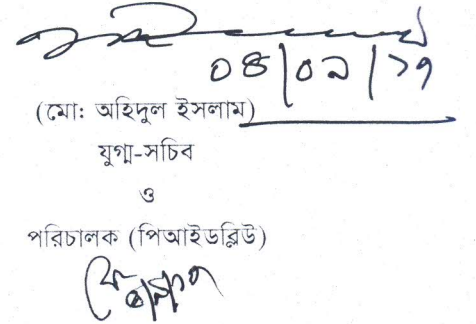 ০৪/০৯/১৭
(মো: অহিদুল ইসলাম)
যুগ্ম-সচিব
ও
পরিচালক (পিআইডব্লিউ)